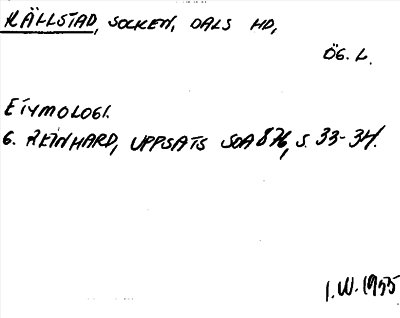 KÄLLSTAD, SOCKEN, DALS HD,
ÖG. L.
ETYMOLOGI.
G. REINHARD, UPPSATS SOA 876, S. 33-34.
I.W. 1955